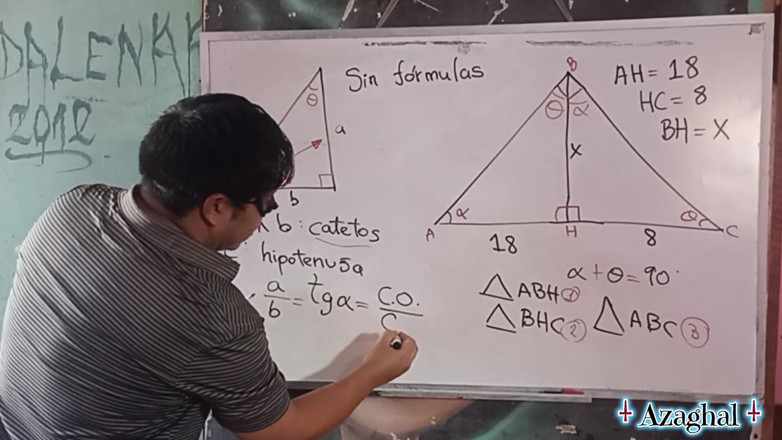 DALENAK
2012
Sin fórmulas
θ
a
b
b: catetos
hipotenusa
a/b = tg α = C.O./C
B
θ α
x
α
θ
A
H
C
18
8
AH = 18
HC = 8
BH = X
α + θ = 90°
△ABH 1
△BHC 2
△ABC 3
Azaghal